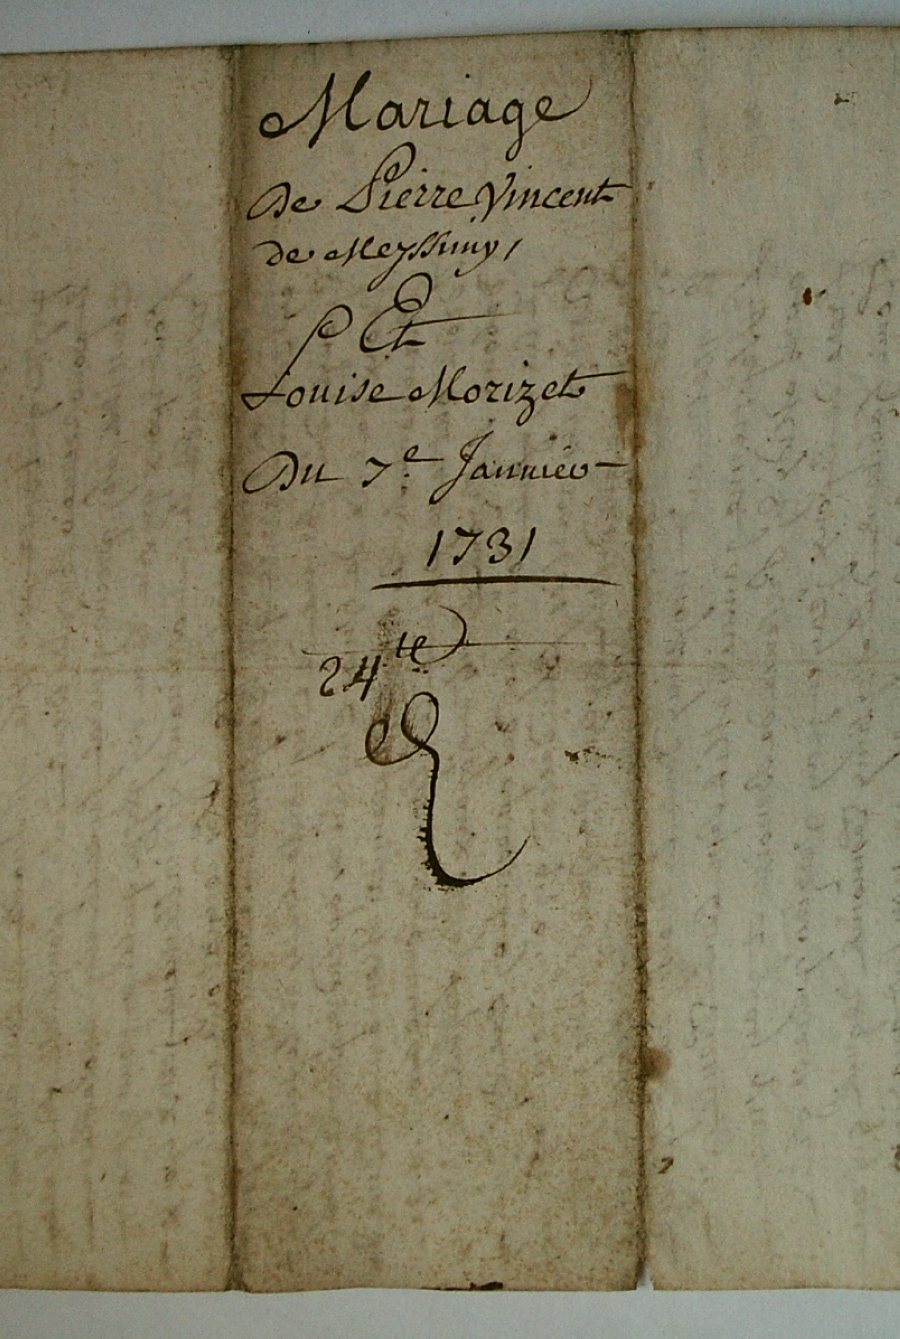 Mariage
De Pierre Vincent
de Meyssimy,
Et
Louise Morizet
Du 7e Januier
1731
24te